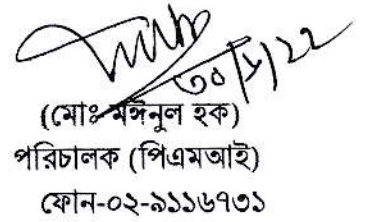 ৩০/৮/২২
(মোঃ মঈনুল হক)
পরিচালক (পিএমআই)
ফোন-০২-৯১১৬৭৩১